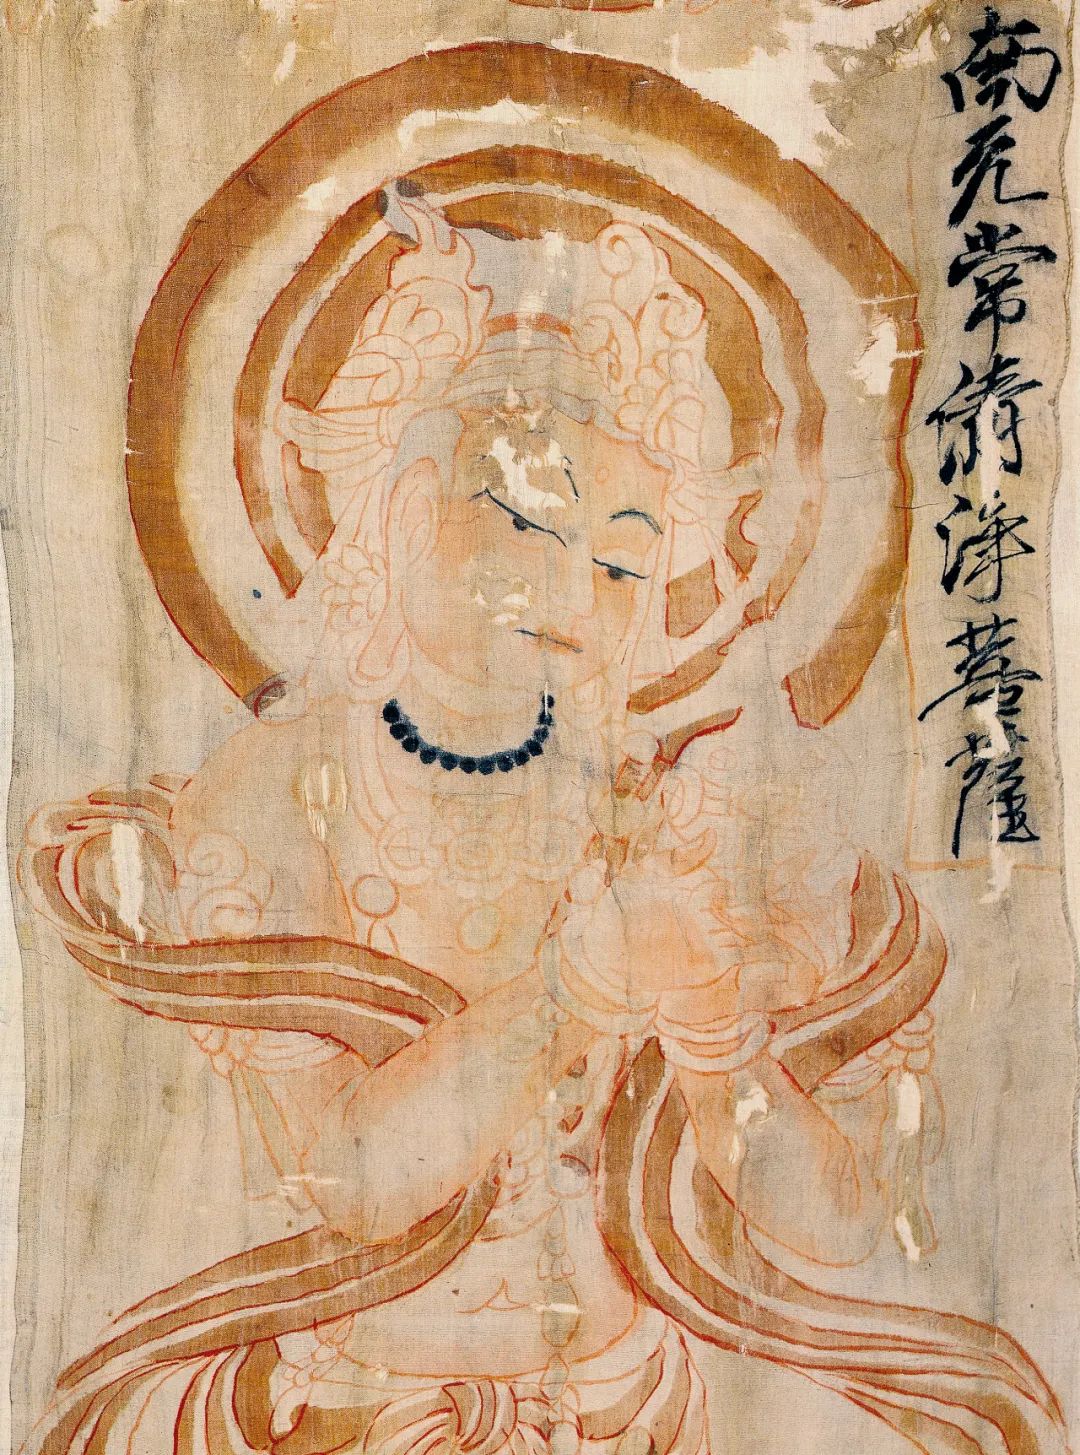 南无常清淨菩薩